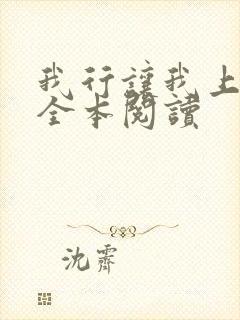 我行讓我上
全本閱讀
沈霽